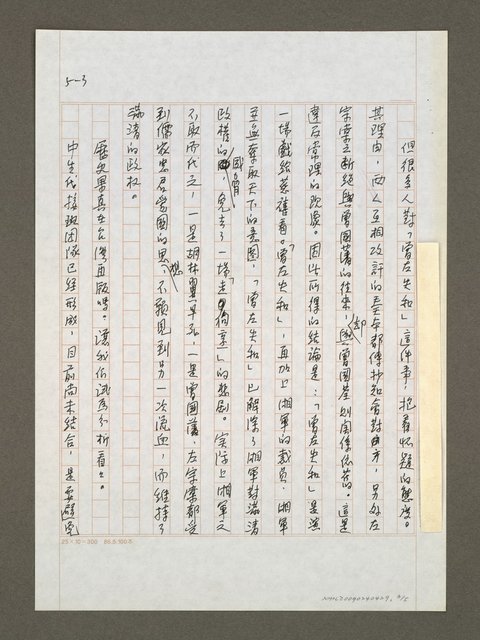 5-3
但很多人對「曾左失和」這件事，抱著懷疑的態度。
其理由，兩人互相攻訐的奏本都傳抄知會對方，另外左
宗棠立斷絕與曾國藩的往來，卻與曾國荃則關係依舊。這是
違反常理的現象。因此所得的結論是：「曾左失和」是演
一場戲給慈禧看。「曾左失和」，再加上湘軍的裁員，湘軍
並無奪取天下的意圖，「曾左失和」已解除了湘軍對滿清
政權的威脅，免去了一場走狗烹」的悲劇。實際上湘軍之
不取而代之，一是胡林翼早死，一是曾國藩、左宗棠都受
到儒家忠君愛國的思想，不願見到另一次流血，而維持了
滿清的政权。
歷史果真在台灣再版嗎。讓我們試為分析看看。
中生代接班團隊已經形成，目前尚未結合，是
25×10=300
NMTL20090240429